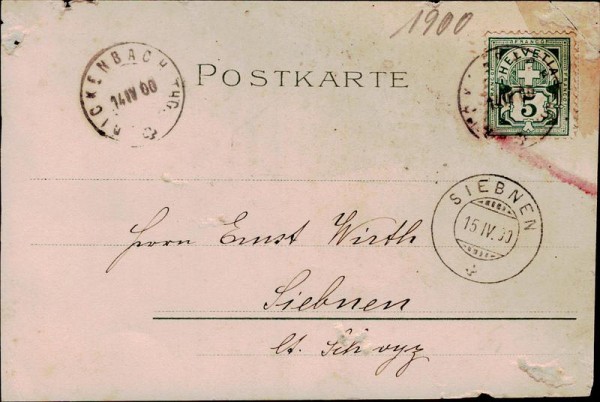 1900
POSTKARTE
RICKENBACH THG.
14 IV 00
HELVETIA
5
SIEBNEN
15. IV. 00
Herrn Ernst Wirth
Siebnen
Ct. Schwyz